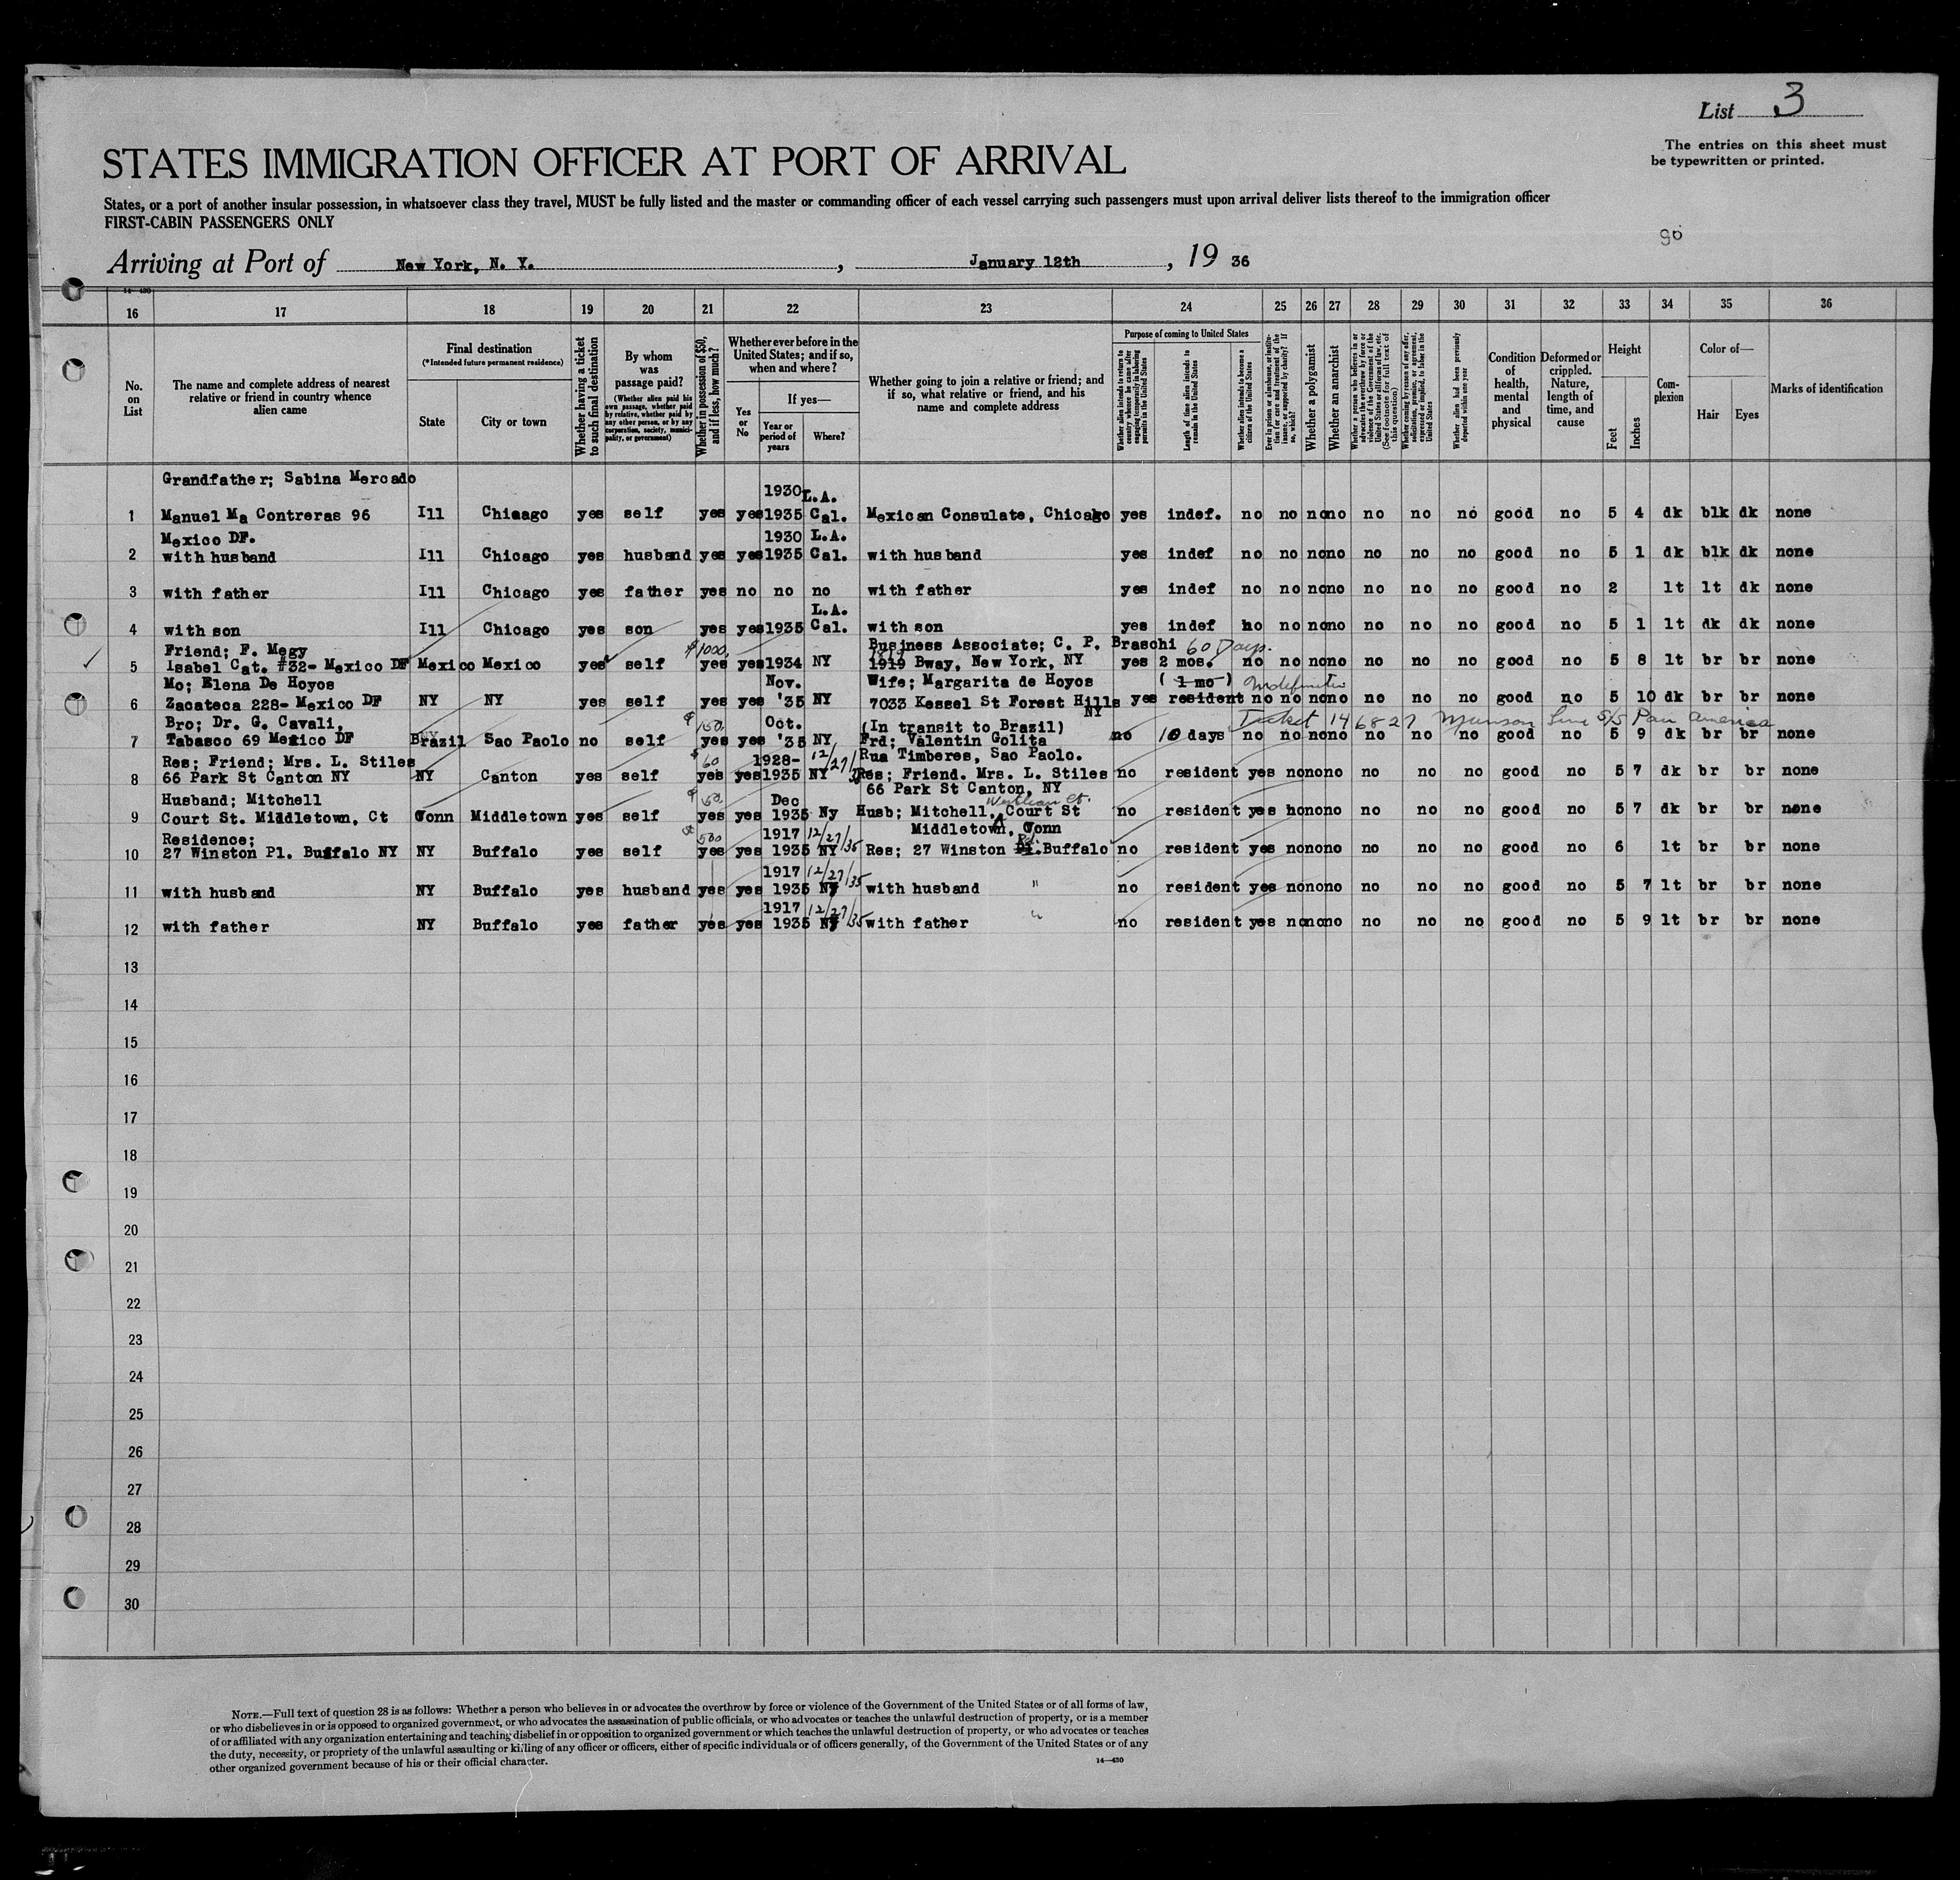 List 3
The entries on this sheet must
be typewritten or printed.
STATES IMMIGRATION OFFICER AT PORT OF ARRIVAL
States, or a port of another insular possession, in whatsoever class they travel, MUST be fully listed and the master or commanding officer of each vessel carrying such passengers must upon arrival deliver lists thereof to the immigration officer
FIRST-CABIN PASSENGERS ONLY
90
Arriving at Port of New York, N. Y. , January 12th , 19 36
14—430
16 17 18 19 20 21 22 23 24 25 26 27 28 29 30 31 32 33 34 35 36
No. on List
The name and complete address of nearest relative or friend in country whence alien came
Final destination
(*Intended future permanent residence)
State
City or town
Whether having a ticket to such final destination
By whom was passage paid?
(Whether alien paid his own passage, whether paid by relative, whether paid by any other person, or by any corporation, society, municipality, or government)
Whether in possession of $50, and if less, how much?
Whether ever before in the United States; and if so, when and where?
Yes or No
If yes—
Year or period of years
Where?
Whether going to join a relative or friend; and if so, what relative or friend, and his name and complete address
Purpose of coming to United States
Whether alien intends to return to country whence he came after engaging temporarily in laboring pursuits in the United States
Length of time alien intends to remain in the United States
Whether alien intends to become a citizen of the United States
Ever in prison or almshouse, or institution for care and treatment of the insane, or supported by charity? If so, which?
Whether a polygamist
Whether an anarchist
Whether a person who believes in or advocates the overthrow by force or violence of the Government of the United States or all forms of law, etc. (See footnote for full text of this question)
Whether coming by reason of any offer, solicitation, promise, or agreement, expressed or implied, to labor in the United States
Whether alien had been previously deported within one year
Condition of health, mental and physical
Deformed or crippled. Nature, length of time, and cause
Height
Feet
Inches
Complexion
Color of—
Hair
Eyes
Marks of identification
Grandfather; Sabina Mercado
1930 L.A.
1 Manuel Ma Contreras 96 Ill Chicago yes self yes yes 1935 Cal. Mexican Consulate, Chicago yes indef. no no no no no no no good no 5 4 dk blk dk none
Mexico DF. 1930 L.A.
2 with husband Ill Chicago yes husband yes yes 1935 Cal. with husband yes indef no no no no no no no good no 5 1 dk blk dk none
3 with father Ill Chicago yes father yes no no no with father yes indef no no no no no no no good no 2 lt lt dk none
L.A.
4 with son Ill Chicago yes son yes yes 1935 Cal. with son yes indef no no no no no no no good no 5 1 lt dk dk none
Friend; F. Megy $1000. Business Associate; C. P. Braschi 60 Days.
5 Isabel Cat. #32- Mexico DF Mexico Mexico yes self yes yes 1934 NY 1919 Bway, New York, NY yes 2 mos. no no no no no no no good no 5 8 lt br br none
Mo; Elena De Hoyos Nov. Wife; Margarita de Hoyos ( 1 mo ) Indefinite
6 Zacateca 228- Mexico DF NY NY yes self yes yes '35 NY 7033 Kessel St Forest Hills yes resident no no no no no no no good no 5 10 dk br br none
NY
Bro; Dr. G. Cavali, $ 150. Oct. (In transit to Brazil) Ticket 146827 Munson Line S/S Pan America
7 Tabasco 69 Mexico DF Brazil Sao Paolo no self yes yes '35 NY Frd; Valentin Golita no 10 days no no no no no no no good no 5 9 dk br br none
Res; Friend; Mrs. L. Stiles $ 60 1928- 12/27/35 Rua Timberes, Sao Paolo.
8 66 Park St Canton NY NY Canton yes self yes yes 1935 NY Res; Friend. Mrs. L. Stiles no resident yes no no no no no no good no 5 7 dk br br none
66 Park St Canton, NY
Husband; Mitchell $ 50. Dec
9 Court St. Middletown, Ct Conn Middletown yes self yes yes 1935 Ny Husb; Mitchell, Court St no resident yes no no no no no no good no 5 7 dk br br none
Middletown, Conn
Residence; $ 500 1917 12/27/35
10 27 Winston Pl. Buffalo NY NY Buffalo yes self yes yes 1935 NY Res; 27 Winston Rd. Buffalo no resident yes no no no no no no good no 6 lt br br none
1917 12/27/35
11 with husband NY Buffalo yes husband yes yes 1935 NY with husband " no resident yes no no no no no no good no 5 7 lt br br none
1917 12/27/35
12 with father NY Buffalo yes father yes yes 1935 NY with father " no resident yes no no no no no no good no 5 9 lt br br none
13
14
15
16
17
18
19
20
21
22
23
24
25
26
27
28
29
30
NOTE.—Full text of question 28 is as follows: Whether a person who believes in or advocates the overthrow by force or violence of the Government of the United States or of all forms of law,
or who disbelieves in or is opposed to organized government, or who advocates the assassination of public officials, or who advocates or teaches the unlawful destruction of property, or is a member
of or affiliated with any organization entertaining and teaching disbelief in or opposition to organized government or which teaches the unlawful destruction of property, or who advocates or teaches
the duty, necessity, or propriety of the unlawful assaulting or killing of any officer or officers, either of specific individuals or of officers generally, of the Government of the United States or of any
other organized government because of his or their official character.
14—430